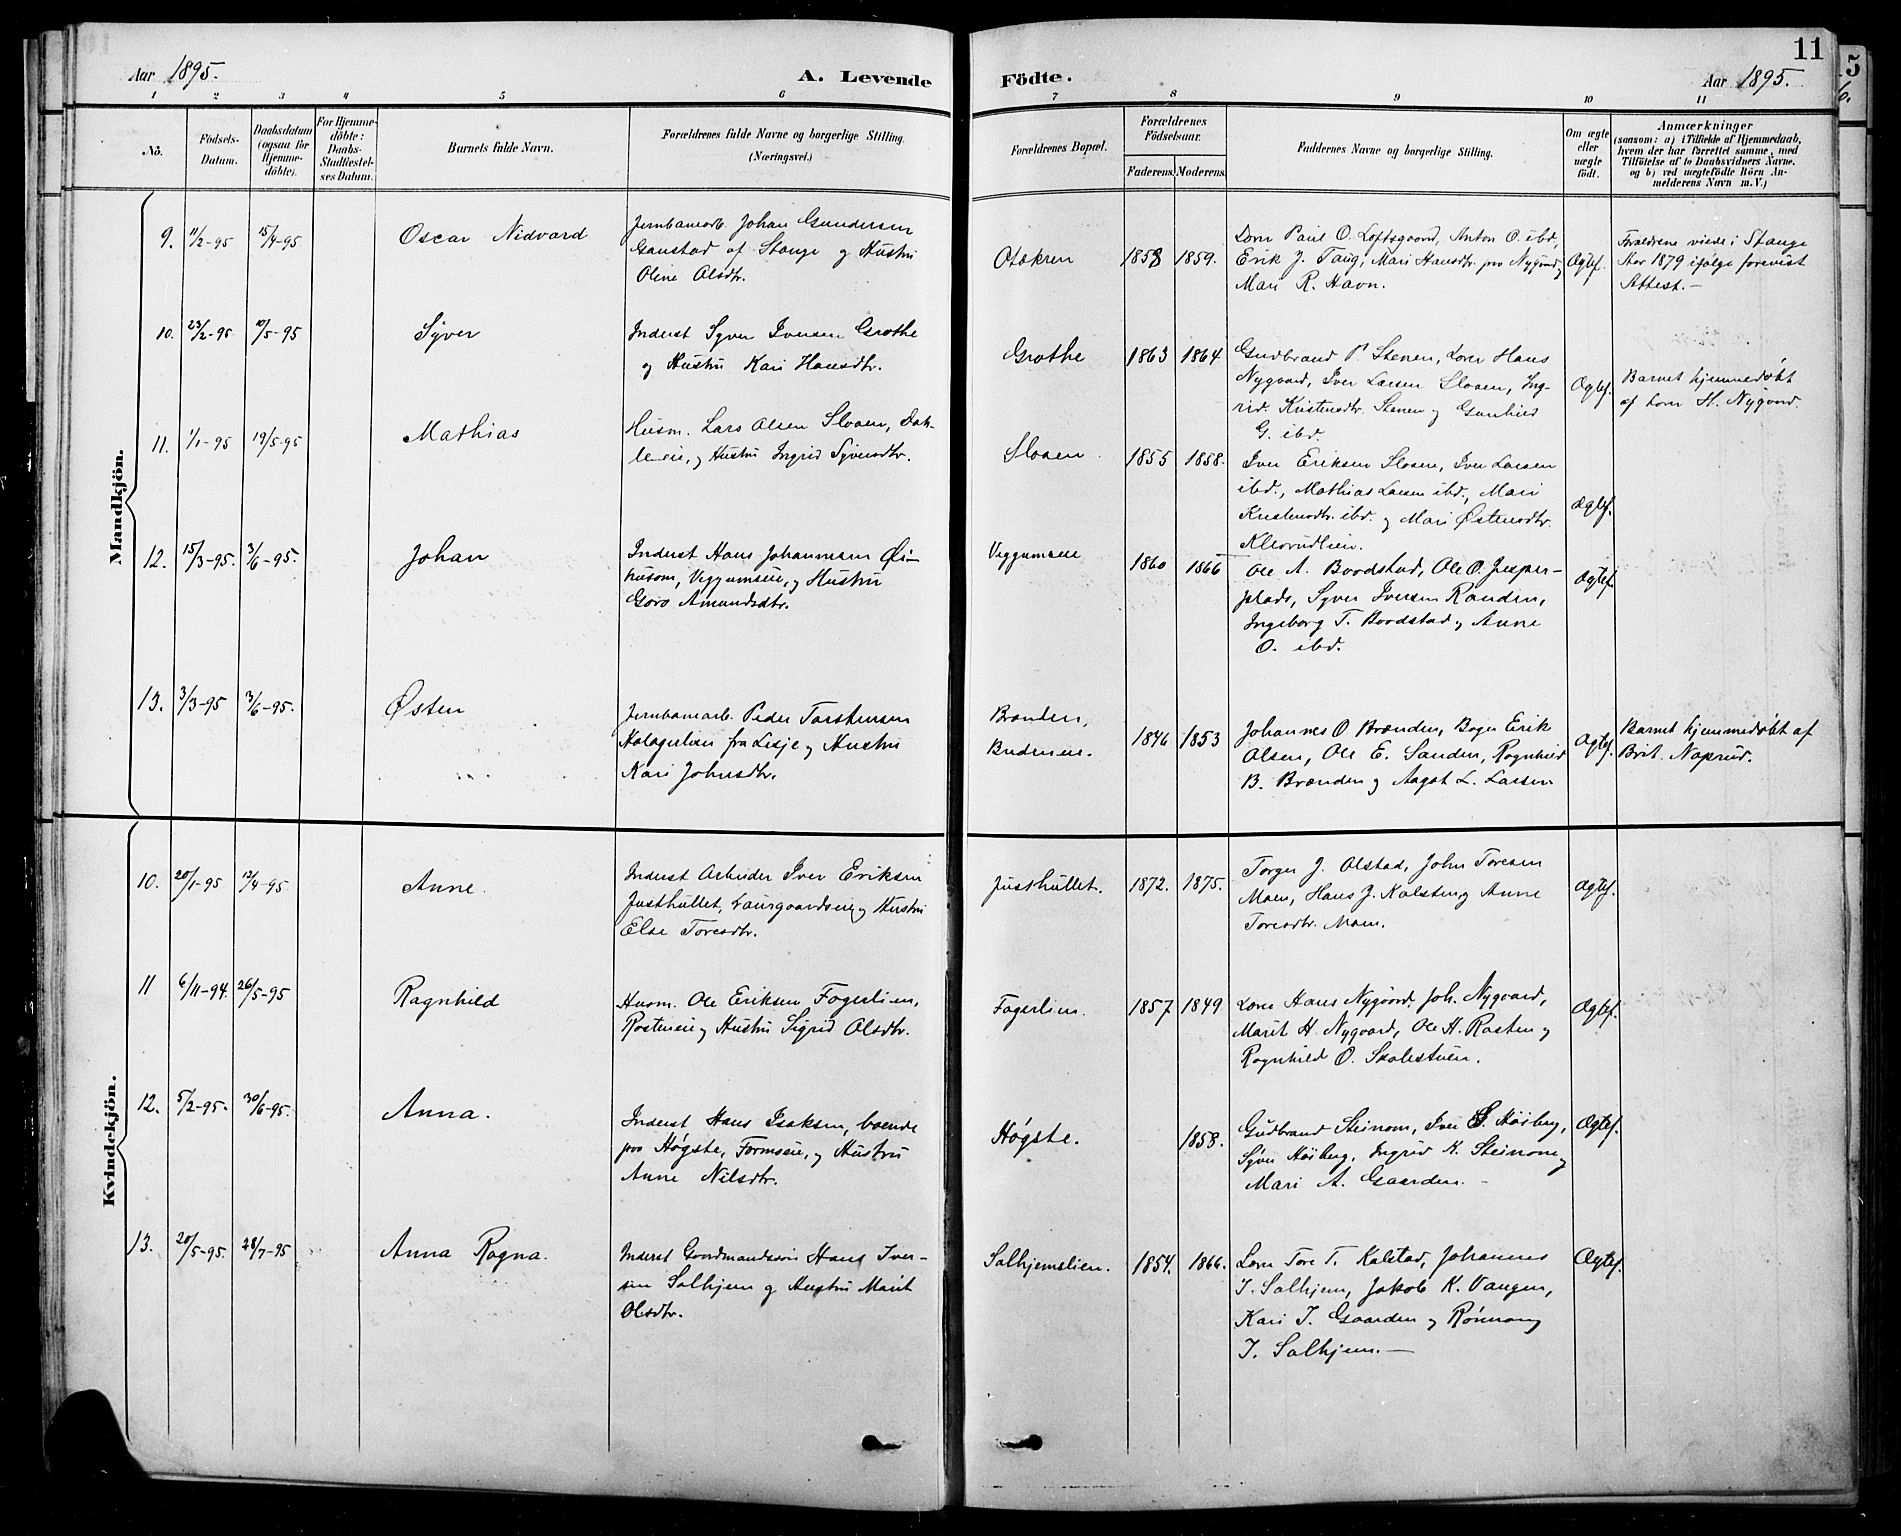 Aar 1895.
A. Levende
Födte.
Aar 1895.
11
1 2 3 4 5 6 7 8 9 10 11
No.
Födsels-
Datum.
Daabsdatum
(ogsaa for
Hjemme-
döbte).
For Hjemme-
döbte:
Daabs-
Stadfæstel-
ses Datum.
Barnets fulde Navn.
Forældrenes fulde Navne og borgerlige Stilling.
(Næringsvei.)
Forældrenes Bopæl.
Forældrenes
Födselsaar.
Faderens. Moderens.
Faddernes Navne og borgerlige Stilling.
Om ægte
eller
uægte
födt.
Anmærkninger
(saasom: a) i Tilfælde af Hjemmedaab,
hvem der har forrettet samme, med
Tilföielse af to Daabsvidners Navne.
og b) ved uægtefödte Börn An-
melderens Navn m. V.)
Mandkjön.
9. 11/2-95 15/4-95
Oscar Nidvard
Jernbanearb. Johan Gundersen
Ganstad af Stange og Hustru
Oline Olsdtr.
Otækren
1858 1859.
Lorn Paul O. Loftsgaard, Anton O. ibd,
Erik J. Taug, Mari Hansdtr. paa Nygard og
Mari R. Havn.
Ægtef.
Forældrene viede i Stange
Aar 1879 ifølge forevist
Attest.-
10. 23/2-95 10/5-95
Syver
Inderst Syver Iversen Grothe
og Hustru Kari Hansdtr.
Grothe
1863 1864.
Gudbrand P. Stenen, Lorn Hans
Nygaard, Iver Larsen Sloaen, Ing-
rid Kristensdtr. Stenen og Gunhild
G. ibd.
Ægtef.
Barnet hjemmedøbt
af Lorn H. Nygaard.
11. 1/1-95 19/5-95
Mathias
Husm. Lars Olsen Sloaen, Dah-
leeie, og Hustru Ingrid Syversdtr.
Sloaen
1855 1858.
Iver Eriksen Sloaen, Iver Larsen
ibd., Mathias Larsen ibd., Mari
Kristensdtr. ibd. og Mari Østensdtr.
Kleivrudlien.
Ægtef.
12. 15/3-95. 3/6-95.
Johan
Inderst Hans Johannesen Øi-
husom, Veggumseie, og Hustru
Goro Amundsdtr.
Veggumseie
1860 1866
Ole A. Baadstad, Ole O. Jesper-
plads, Syver Iversen Randen,
Ingeborg T. Baadstad og Anne
O. ibd.
Ægtef.
13. 3/3-95 3/6-95.
Østen
Jernbanearb. Peder Torstensen
Holagerlien fra Lesje og Hustru
Kari Johnsdtr.
Brænden,
Budeneie.
1846 1853
Johannes O. Brænden, Bager Erik
Olsen, Ole E. Sanden, Ragnhild
B. Brænden og Aagot L. Larsen
Ægtef.
Barnet hjemmedøbt af
Brit. Naprud.
Kvindekjön.
10. 20/1-95 13/4-95
Anne.
Inderst Arbeider Iver Eriksen
Justhullet, Laurgaardseie og Hustru
Else Toresdtr.
Justhullet.
1872. 1875.
Torger J. Olstad, John Toresen
Moen, Hans J. Kolsten og Anne
Toresdtr. Moen.
Ægtef.
11 6/11-94. 26/5-95
Ragnhild
Husm. Ole Eriksen Fagerlien,
Rosteneie og Hustru Sigrid Olsdtr.
Fagerlien.
1857 1849
Lorn Hans Nygaard, Joh. Nygaard,
Marit H. Nygaard, Ole H. Rosten og
Ragnhild O. Skolestuen.
Ægtef.
12. 5/2-95. 30/6-95.
Anna.
Inderst Hans Isaksen, boende
paa Høgste, Formseie, og Hustru
Anne Nilsdtr.
Høgste.
1858.
Gudbrand Steinom, Iver S Høiberg,
Syver Høiberg, Ingrid K. Steinom og
Mari A. Gaarden.-
Ægtef.
13. 20/5-95. 28/7-95
Anna Ragna.
Inderst Gaardmandssøn Hans Iver-
sen Solhjem og Hustru Marit
Olsdtr.
Solhjemslien.
1854. 1866.
Lorn Tore T. Kolstad, Johannes
I. Solhjem, Jakob K. Vangen,
Kari I. Gaarden og Rønnoug
I. Solhjem.-
Ægtef.